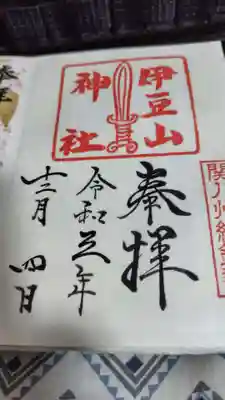 関八州総鎮
伊豆山
神社
奉拝
令和 年
十二月 四日